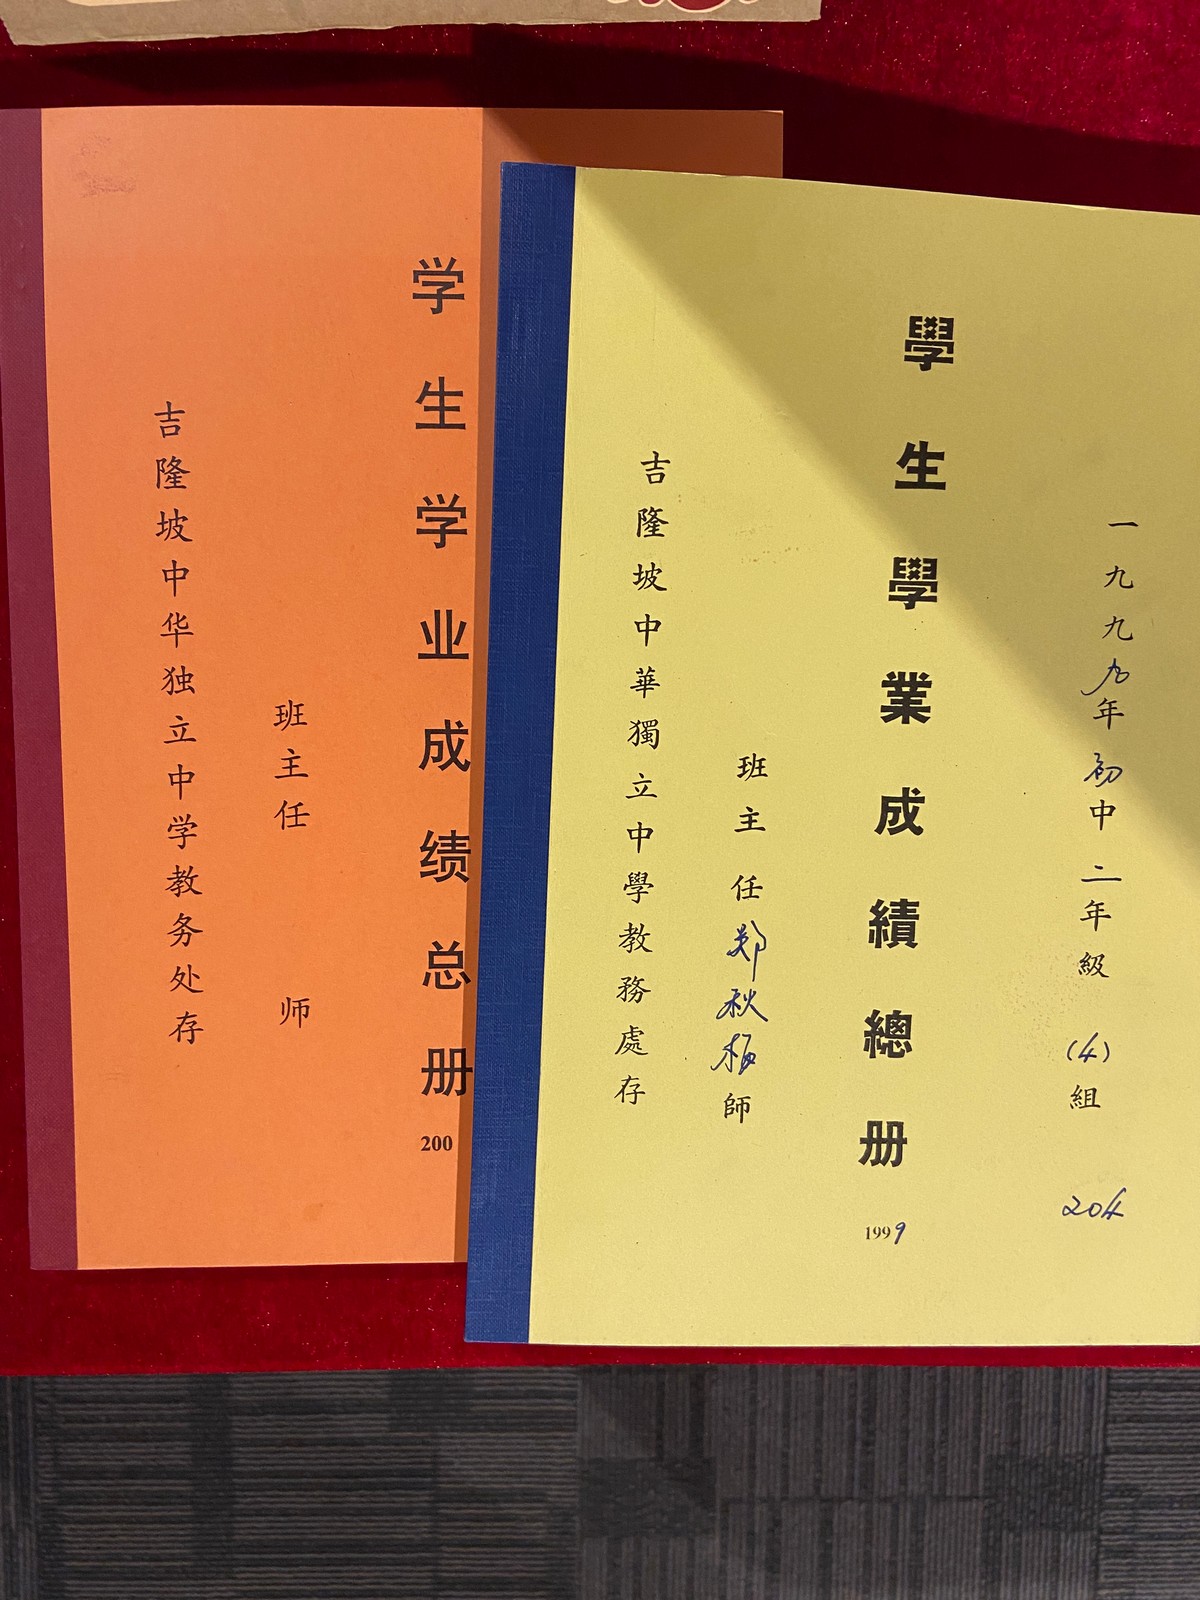 学生学业成绩总册
200
班主任 师
吉隆坡中华独立中学教务处存
一九九九年初中二年級 (4) 組
204
學生學業成績總册
1999
班主任郑秋梅師
吉隆坡中華獨立中學教務處存